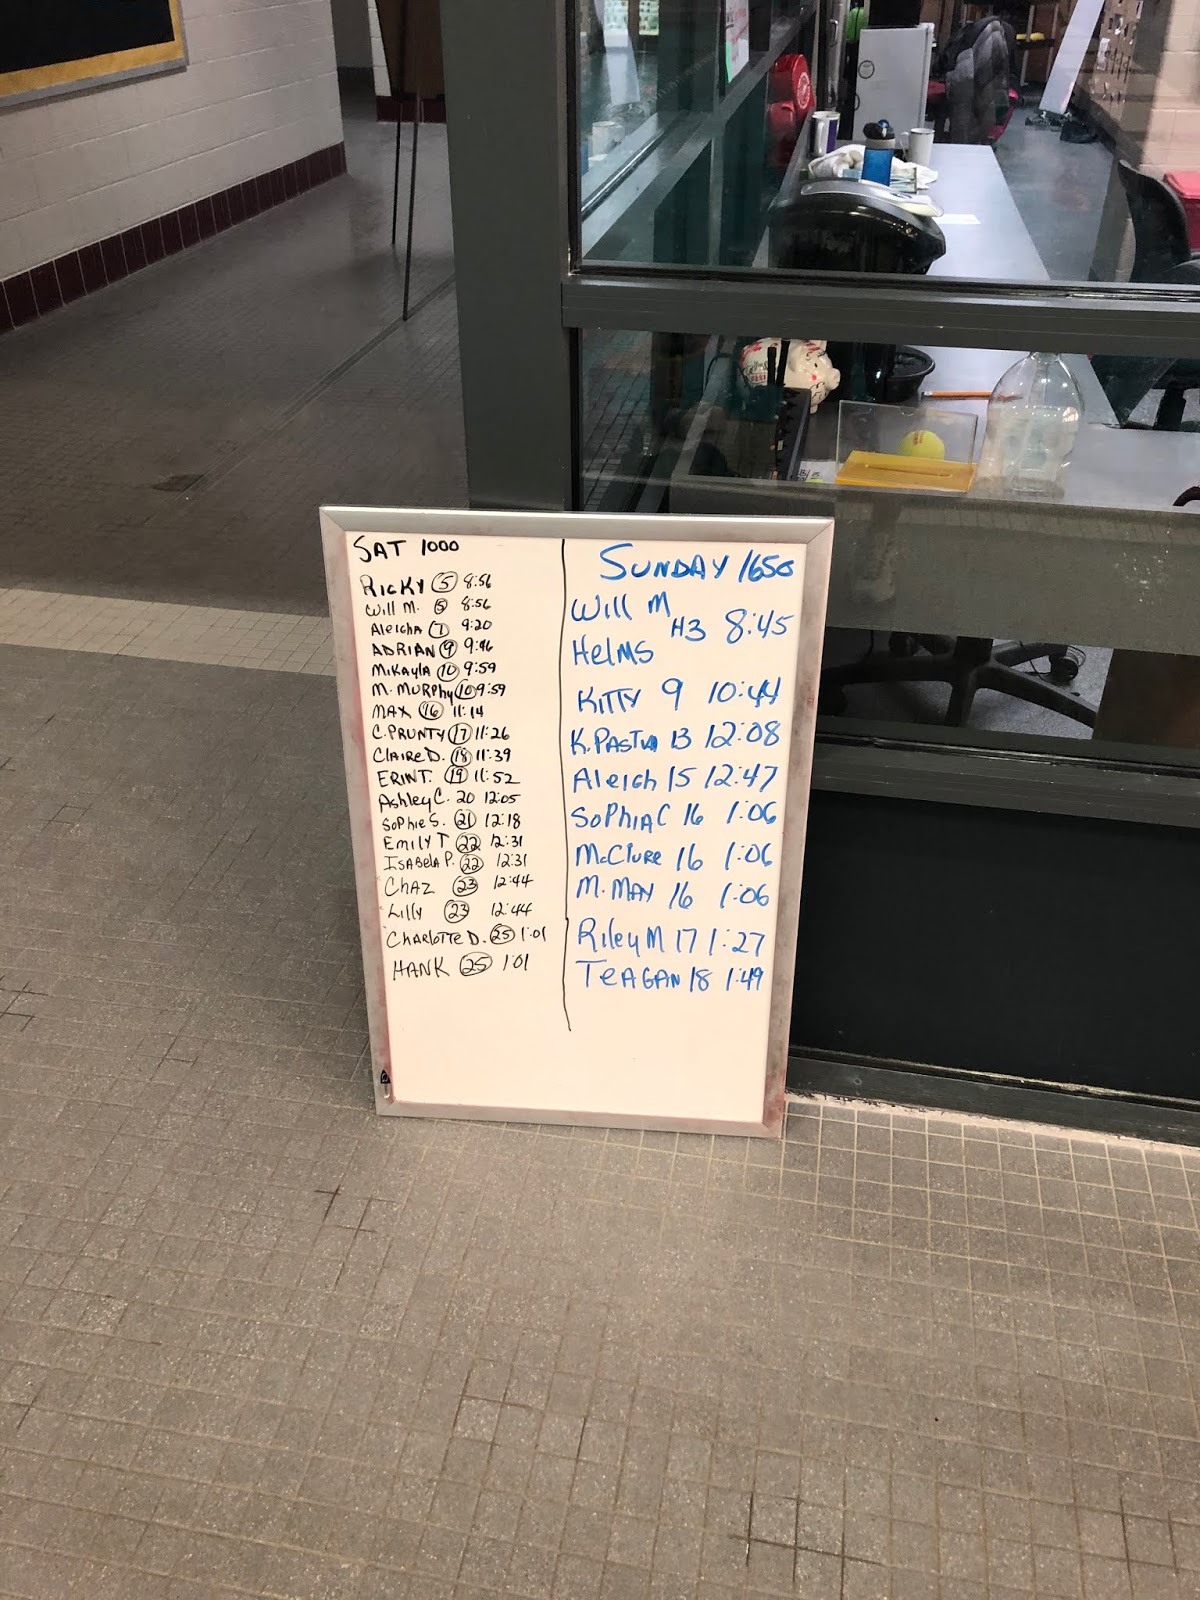 SAT 1000
RICKY 5 8:56
Will M. 5 8:56
Aleigha 7 9:20
ADRIAN 9 9:46
MiKAylA 10 9:59
M. MURPhy 10 9:59
MAX 16 11:14
C. PRUNTY 17 11:26
Claire D. 18 11:39
ERIN T. 19 11:52
Ashley C. 20 12:05
SoPhie S. 21 12:18
EMily T 22 12:31
ISABElA P. 22 12:31
ChAZ 23 12:44
Lilly 23 12:44
ChARlOTTE D. 25 1:01
HANK 25 1:01
SUNDAY 1650
Will M
H3 8:45
HelMS
KITTY 9 10:44
K. 13 12:08
Aleigh 15 12:47
SoPhiA C 16 1:06
McClure 16 1:06
M. MAY 16 1:06
Riley M 17 1:27
TeAGAN 18 1:49